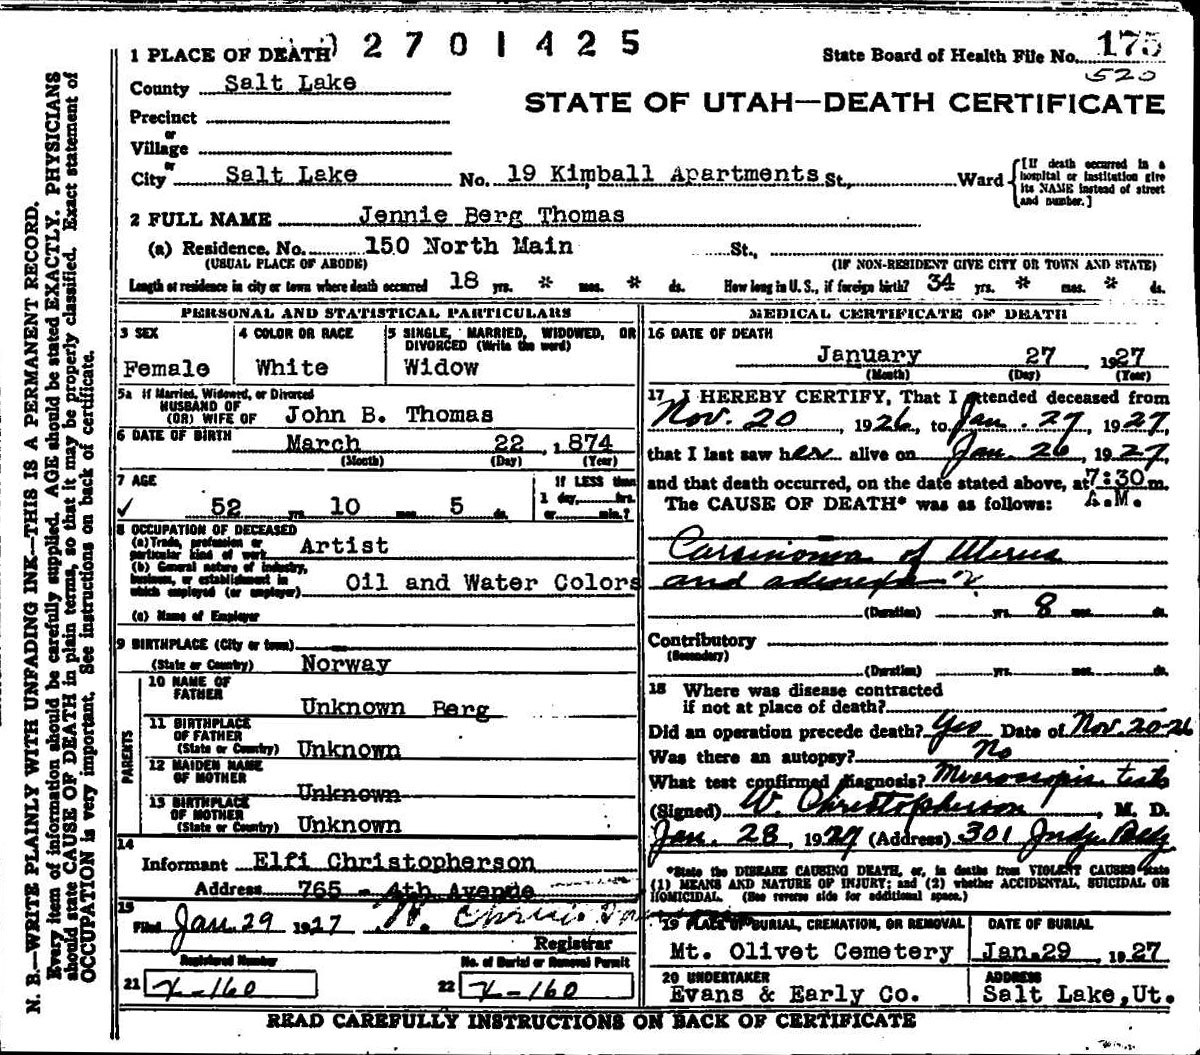 1 PLACE OF DEATH 2701425 State Board of Health File No. 175
520
County Salt Lake
STATE OF UTAH—DEATH CERTIFICATE
Precinct
or
Village
or
City Salt Lake No. 19 Kimball Apartments St., Ward [If death occurred in a hospital or institution give its NAME instead of street and number.]
2 FULL NAME Jennie Berg Thomas
(a) Residence. No. 150 North Main St.,
(USUAL PLACE OF ABODE) (IF NON-RESIDENT GIVE CITY OR TOWN AND STATE)
Length of residence in city or town where death occurred 18 yrs. * mos. * ds. How long in U. S., if foreign birth? 34 yrs. * mos. * ds.
PERSONAL AND STATISTICAL PARTICULARS
3 SEX
Female
4 COLOR OR RACE
White
5 SINGLE, MARRIED, WIDOWED, OR
DIVORCED (Write the word)
Widow
5a If Married, Widowed, or Divorced
HUSBAND OF
(OR) WIFE OF John B. Thomas
6 DATE OF BIRTH March 22 , 1874
(Month) (Day) (Year)
7 AGE
✓ 52 yrs. 10 mos. 5 ds.
If LESS than
1 day, hrs.
or min.?
8 OCCUPATION OF DECEASED
(a) Trade, profession or
particular kind of work Artist
(b) General nature of industry,
business, or establishment in
which employed (or employer) Oil and Water Colors
(c) Name of Employer
9 BIRTHPLACE (City or town)
(State or Country) Norway
PARENTS
10 NAME OF
FATHER Unknown Berg
11 BIRTHPLACE
OF FATHER
(State or Country) Unknown
12 MAIDEN NAME
OF MOTHER Unknown
13 BIRTHPLACE
OF MOTHER
(State or Country) Unknown
14
Informant Elfi Christopherson
Address 765 - 4th Avenue
15
Filed Jan. 29 1927
Registrar
Registered Number No. of Burial or Removal Permit
21 X-160 22 X-160
MEDICAL CERTIFICATE OF DEATH
16 DATE OF DEATH
January 27 1927
(Month) (Day) (Year)
17 I HEREBY CERTIFY, That I attended deceased from
Nov. 20 , 1926, to Jan. 27, 1927,
that I last saw her alive on Jan. 26, 1927,
and that death occurred, on the date stated above, at 7:30 m.
The CAUSE OF DEATH* was as follows: A.M.
Carsinoma of Uterus
and adnexa
(Duration) yrs. 8 mos. ds.
Contributory
(Secondary)
(Duration) yrs. mos. ds.
18 Where was disease contracted
if not at place of death?
Did an operation precede death? Yes Date of Nov. 20-26
Was there an autopsy? No
What test confirmed diagnosis? Microscopic tests
(Signed) W. Christopherson, M. D.
Jan. 28, 1927 (Address) 301 Judge Bldg
*State the DISEASE CAUSING DEATH, or, in deaths from VIOLENT CAUSES state
(1) MEANS AND NATURE OF INJURY; and (2) whether ACCIDENTAL, SUICIDAL OR
HOMICIDAL. (See reverse side for additional space.)
19 PLACE OF BURIAL, CREMATION, OR REMOVAL DATE OF BURIAL
Mt. Olivet Cemetery Jan. 29 , 1927
20 UNDERTAKER ADDRESS
Evans & Early Co. Salt Lake, Ut.
READ CAREFULLY INSTRUCTIONS ON BACK OF CERTIFICATE
N. B.—WRITE PLAINLY WITH UNFADING INK—THIS IS A PERMANENT RECORD.
Every item of information should be carefully supplied. AGE should be stated EXACTLY. PHYSICIANS
should state CAUSE OF DEATH in plain terms, so that it may be properly classified. Exact statement of
OCCUPATION is very important. See instructions on back of certificate.